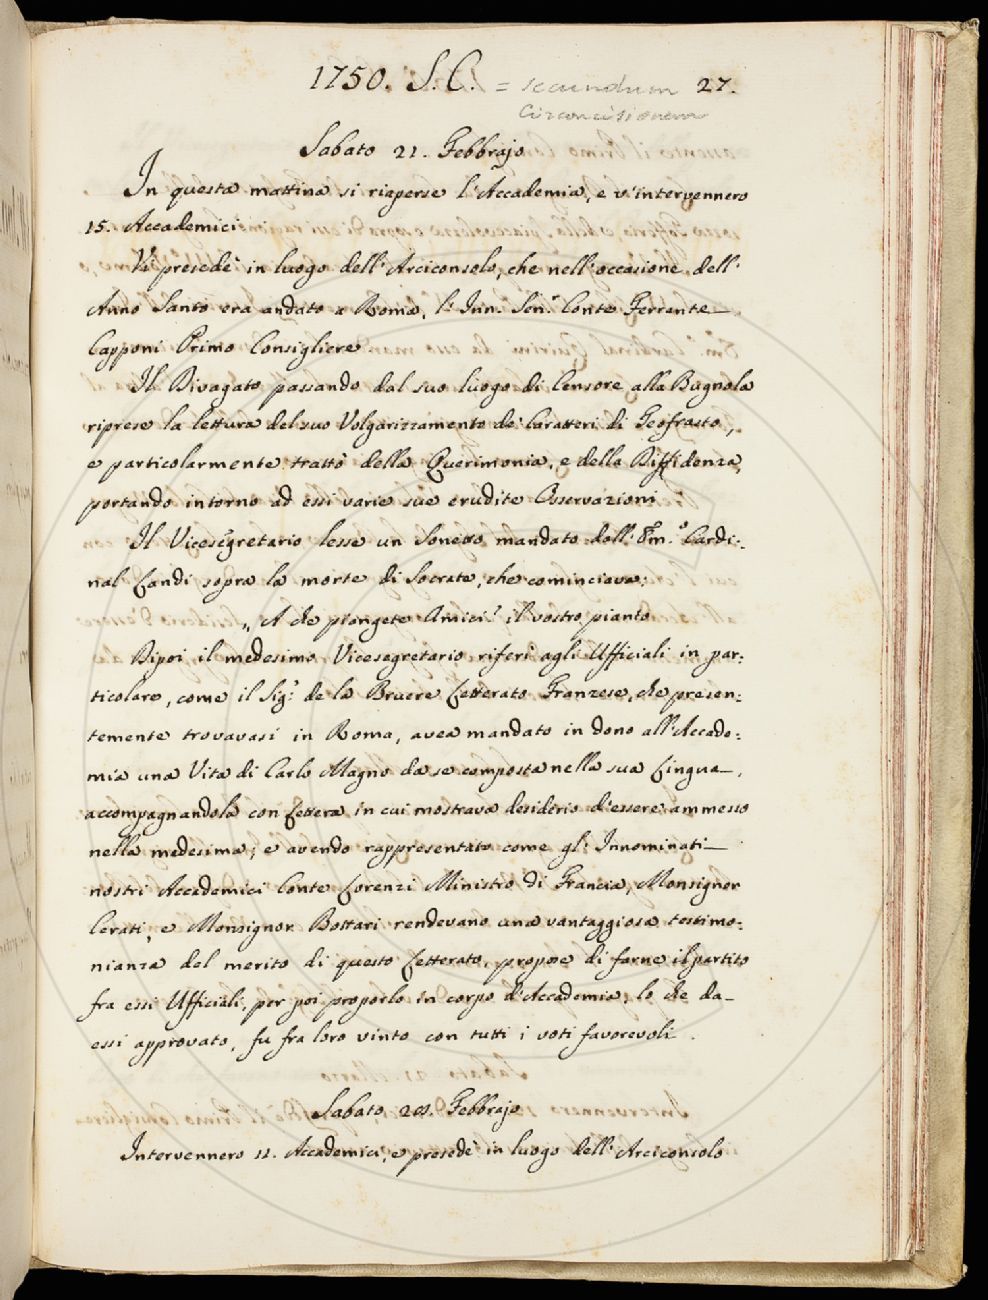 1750. S. C. = secundum 27.
Circoncisionem
Sabato 21. Febbrajo
In questa mattina si riaperse l'Accademia, e v'intervennero
15. Accademici
Vi presedè in luogo dell'Arciconsolo, che nell'occasione dell'
Anno Santo era andato a Roma, l'Inn. Sen.e Conte Ferrante
Capponi Primo Consigliere
Il Divagato passando dal suo luogo di Censore alla Bugnola
riprese la lettura del suo Volgarizzamento de' Caratteri di Teofrasto,
e particolarmente trattò della Querimonia, e della Diffidenza,
portando intorno ad essi varie sue erudite Osservazioni
Il Vicesegretario lesse un Sonetto mandato dall'Em.o Cardi:
nal Landi sopra la morte di Socrate, che cominciava:
„ A che piangete Amici? il vostro pianto
Dipoi il medesimo Vicesegretario riferì agli Ufficiali in par:
ticolare, come il Sig.r de la Bruere Letterato Franzese, che presen:
temente trovavasi in Roma, avea mandato in dono all'Accade:
mia una Vita di Carlo Magno da se composta nella sua Lingua,
accompagnandola con Lettera in cui mostrava desiderio d'essere ammesso
nella medesima; e avendo rappresentato come gl'Innominati
nostri Accademici Conte Lorenzi Ministro di Francia, Monsignor
Cerati, e Monsignor Bottari rendevano una vantaggiosa testimo:
nianza del merito di questo Letterato, propose di farne il partito
fra essi Ufficiali, per poi proporlo in corpo d'Accademia, lo che da
essi approvato, fu fra loro vinto con tutti i voti favorevoli.
Sabato 28. Febbrajo
Intervennero 11. Accademici, e presedè in luogo dell'Arciconsolo